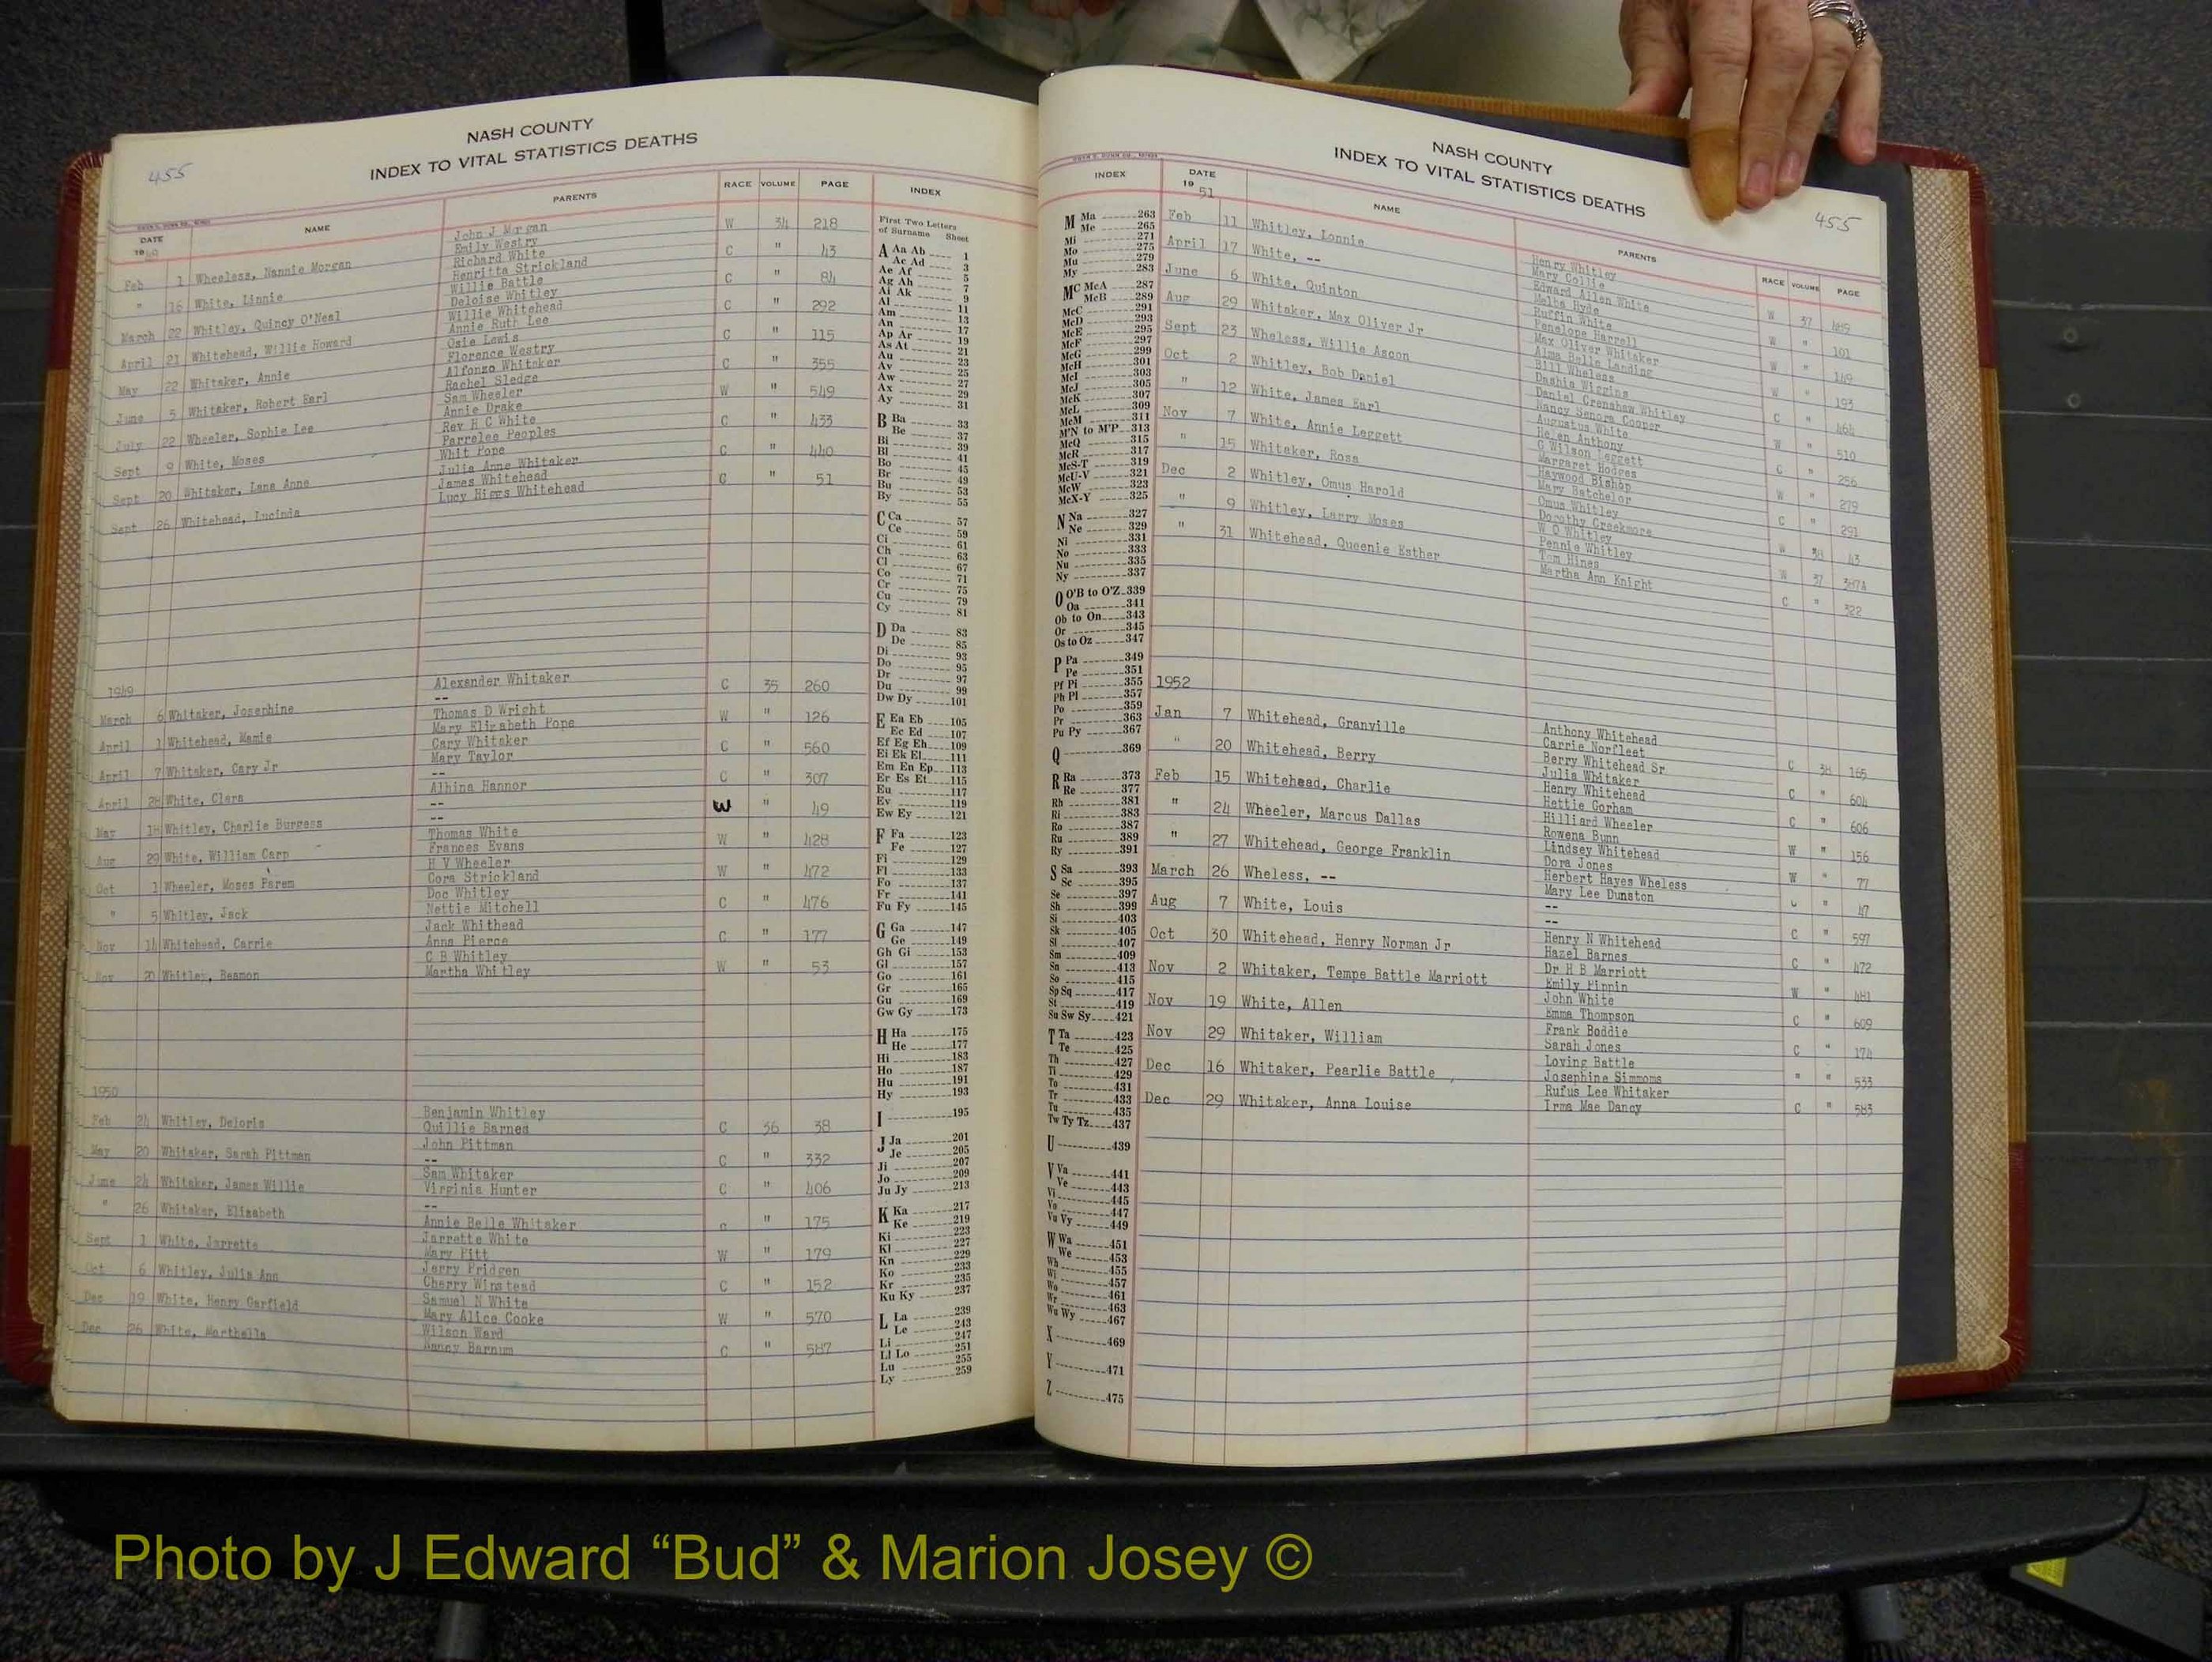 455
NASH COUNTY
INDEX TO VITAL STATISTICS DEATHS
DATE NAME PARENTS RACE VOLUME PAGE INDEX
Feb 1 Wheeless, Nannie Morgan John J Morgan W 34 218
Emily Westry
" 16 White, Linnie Richard White C " 43
Henritta Strickland
March 22 Whitley, Quincy O'Neal Willie Battle C " 84
Deloise Whitley
April 21 Whitehead, Willie Howard Willie Whitehead C " 292
Annie Ruth Lee
May 22 Whitaker, Annie Osie Lewis C " 115
Florence Westry
June 5 Whitaker, Robert Earl Alfonzo Whitaker C " 355
Rachel Sledge
July 22 Wheeler, Sophie Lee Sam Wheeler W " 549
Annie Drake
Sept 9 White, Moses Rev H C White C " 433
Parrelee Peoples
Sept 20 Whitaker, Lana Anna Whit Pope C " 440
Julia Anne Whitaker
Sept 26 Whitehead, Lucinda James Whitehead C " 51
Lucy Higgs Whitehead
1949
March 6 Whitaker, Josephine Alexander Whitaker C 35 260
--
April 1 Whitehead, Mamie Thomas D Wright W " 126
Mary Elizabeth Pope
April 7 Whitaker, Cary Jr Cary Whitaker C " 560
Mary Taylor
April 28 White, Clara -- C " 307
Albina Hannor
May 18 Whitley, Charlie Burgess -- W " 49
--
Aug 29 White, William Carp Thomas White W " 428
Frances Evans
Oct 1 Wheeler, Moses Parem H V Wheeler W " 472
Cora Strickland
" 5 Whitley, Jack Doc Whitley C " 476
Nettie Mitchell
Nov 14 Whitehead, Carrie Jack Whithead C " 177
Anna Pierce
Nov 20 Whitley, Beamon C B Whitley W " 53
Martha Whitley
1950
Feb 24 Whitley, Deloris Benjamin Whitley C 36 38
Quillie Barnes
May 20 Whitaker, Sarah Pittman John Pittman C " 332
--
June 24 Whitaker, James Willie Sam Whitaker C " 406
Virginia Hunter
" 26 Whitaker, Elizabeth -- C " 175
Annie Belle Whitaker
Sept 1 White, Jarrette Jarrette White W " 179
Mary Pitt
Oct 6 Whitley, Julia Ann Jerry Pridgen C " 152
Cherry Winstead
Dec 19 White, Henry Garfield Samuel N White W " 570
Mary Alice Cooke
Dec 26 White, Marthella Wilson Ward C " 587
Nancy Barnum
First Two Letters
of Surname Sheet
A Aa Ab 1
Ac Ad 3
Ae Af 5
Ag Ah 7
Ai Ak 9
Al 11
Am 13
An 17
Ap Ar 19
As At 21
Au 23
Av 25
Aw 27
Ax 29
Ay 31
B Ba 33
Be 37
Bi 39
Bl 41
Bo 45
Br 49
Bu 53
By 55
C Ca 57
Ce 59
Ci 61
Ch 63
Cl 67
Co 71
Cr 75
Cu 79
Cy 81
D Da 83
De 85
Di 93
Do 95
Dr 97
Du 99
Dw Dy 101
E Ea Eb 105
Ec Ed 107
Ef Eg Eh 109
Ei Ek El 111
Em En Ep 113
Er Es Et 115
Eu 117
Ev 119
Ew Ey 121
F Fa 123
Fe 127
Fi 129
Fl 133
Fo 137
Fr 141
Fu Fy 145
G Ga 147
Ge 149
Gh Gi 153
Gl 157
Go 161
Gr 165
Gu 169
Gw Gy 173
H Ha 175
He 177
Hi 183
Ho 187
Hu 191
Hy 193
I 195
J Ja 201
Je 205
Ji 207
Jo 209
Ju Jy 213
K Ka 217
Ke 219
Ki 223
Kl 227
Kn 229
Ko 233
Kr 235
Ku Ky 237
L La 239
Le 243
Li 247
Ll Lo 251
Lu 255
Ly 259
NASH COUNTY
INDEX TO VITAL STATISTICS DEATHS
455
INDEX DATE 19 51 NAME PARENTS RACE VOLUME PAGE
M Ma 263
Me 265
Mi 271
Mo 275
Mu 279
My 283
MC McA 287
McB 289
McC 291
McD 293
McE 295
McF 297
McG 299
McH 301
McI 303
McJ 305
McK 307
McL 309
McM 311
M'N to M'P 313
McQ 315
McR 317
McS-T 319
McU-V 321
McW 323
McX-Y 325
N Na 327
Ne 329
Ni 331
No 333
Nu 335
Ny 337
O O'B to O'Z 339
Oa 341
Ob to On 343
Or 345
Os to Oz 347
P Pa 349
Pe 351
Pf Pi 355
Ph Pl 357
Po 359
Pr 363
Pu Py 367
Q 369
R Ra 373
Re 377
Rh 381
Ri 383
Ro 387
Ru 389
Ry 391
S Sa 393
Sc 395
Se 397
Sh 399
Si 403
Sk 405
Sl 407
Sm 409
Sn 413
So 415
Sp Sq 417
St 419
Su Sw Sy 421
T Ta 423
Te 425
Th 427
Ti 429
To 431
Tr 433
Tu 435
Tw Ty Tz 437
U 439
V Va 441
Ve 443
Vi 445
Vo 447
Vu Vy 449
W Wa 451
We 453
Wh 455
Wi 457
Wo 461
Wr 463
Wu Wy 467
X 469
Y 471
Z 475
Feb 11 Whitley, Lonnie Henry Whitley W 37 489
Mary Collie
April 17 White, -- Edward Allen White W " 101
Melba Hyde
June 6 White, Quinton Ruffin White W " 149
Penelope Harrell
Aug 29 Whitaker, Max Oliver Jr Max Oliver Whitaker W " 193
Alma Belle Landing
Sept 23 Wheless, Willie Ascon Bill Wheless C " 464
Dashia Wiggins
Oct 2 Whitley, Bob Daniel Daniel Crenshaw Whitley W " 510
Nancy Senora Cooper
" 12 White, James Earl Augustus White C " 256
Helen Anthony
Nov 7 White, Annie Leggett G Wilson Leggett W " 279
Margaret Hodges
" 15 Whitaker, Rosa Haywood Bishop C " 291
Mary Batchelor
Dec 2 Whitley, Omus Harold Omus Whitley W 38 43
Dorothy Creekmore
" 9 Whitley, Larry Moses W O Whitley W 37 387A
Pennie Whitley
" 31 Whitehead, Queenie Esther Tom Hines C " 322
Martha Ann Knight
1952
Jan 7 Whitehead, Granville Anthony Whitehead C 38 165
Carrie Norfleet
" 20 Whitehead, Berry Berry Whitehead Sr C " 604
Julia Whitaker
Feb 15 Whitehead, Charlie Henry Whitehead C " 606
Hettie Gorham
" 24 Wheeler, Marcus Dallas Hilliard Wheeler W " 156
Rowena Bunn
" 27 Whitehead, George Franklin Lindsey Whitehead W " 77
Dora Jones
March 26 Wheless, -- Herbert Hayes Wheless " 47
Mary Lee Dunston
Aug 7 White, Louis -- C " 597
--
Oct 30 Whitehead, Henry Norman Jr Henry N Whitehead C " 472
Hazel Barnes
Nov 2 Whitaker, Tempe Battle Marriott Dr H B Marriott W " 481
Emily Pippin
Nov 19 White, Allen John White C " 609
Emma Thompson
Nov 29 Whitaker, William Frank Boddie C " 174
Sarah Jones
Dec 16 Whitaker, Pearlie Battle Loving Battle " " 533
Josephine Simmoms
Dec 29 Whitaker, Anna Louise Rufus Lee Whitaker C " 583
Irma Mae Dancy
Photo by J Edward “Bud” & Marion Josey ©